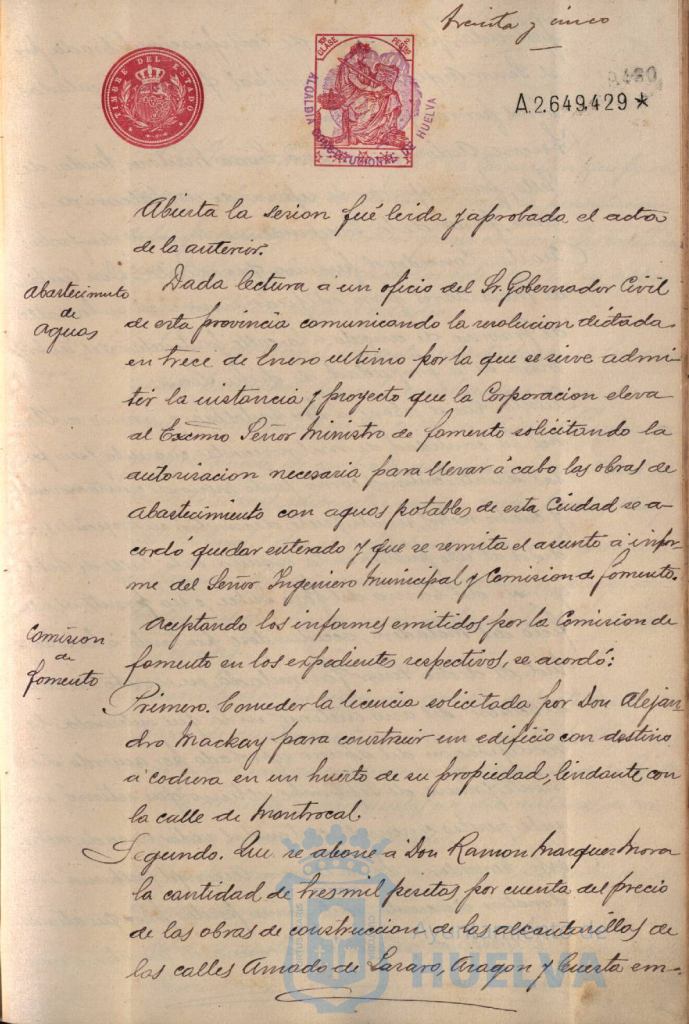 treinta y cinco
TIMBRE DEL ESTADO
11ª CLASE 2 PESETAS
ALCALDIA CONSTITUCIONAL DE HUELVA
A.2.649.429 *
Abierta la sesion fué leida y aprobada el acta
de la anterior.
Abastecimto
de
aguas
Dada lectura á un oficio del Sr. Gobernador Civil
de esta provincia comunicando la resolucion dictada
en trece de Enero ultimo por la que se sirve admi-
tir la instancia y proyecto que la Corporacion eleva
al Excmo Señor Ministro de fomento solicitando la
autorizacion necesaria para llevar á cabo las obras de
abastecimiento con aguas potables de esta Ciudad se a-
cordó quedar enterado y que se remita el asunto á infor-
me del Señor Ingeniero Municipal y Comision de fomento.
Comision
de
fomento
Aceptando los informes emitidos por la Comision de
fomento en los expedientes respectivos, se acordó:
Primero. Conceder la licencia solicitada por Don Alejan-
dro Mackay para construir un edificio con destino
a cochera en un huerto de su propiedad, lindante con
la calle de Montrocal.
Segundo. Que se abone á Don Ramon Marquez Mora
la cantidad de tres mil pesetas por cuenta del precio
de las obras de construccion de las alcantarillas de
las calles Amado de Lazaro, Aragon y Cuesta em-
Ayuntamiento de
HUELVA